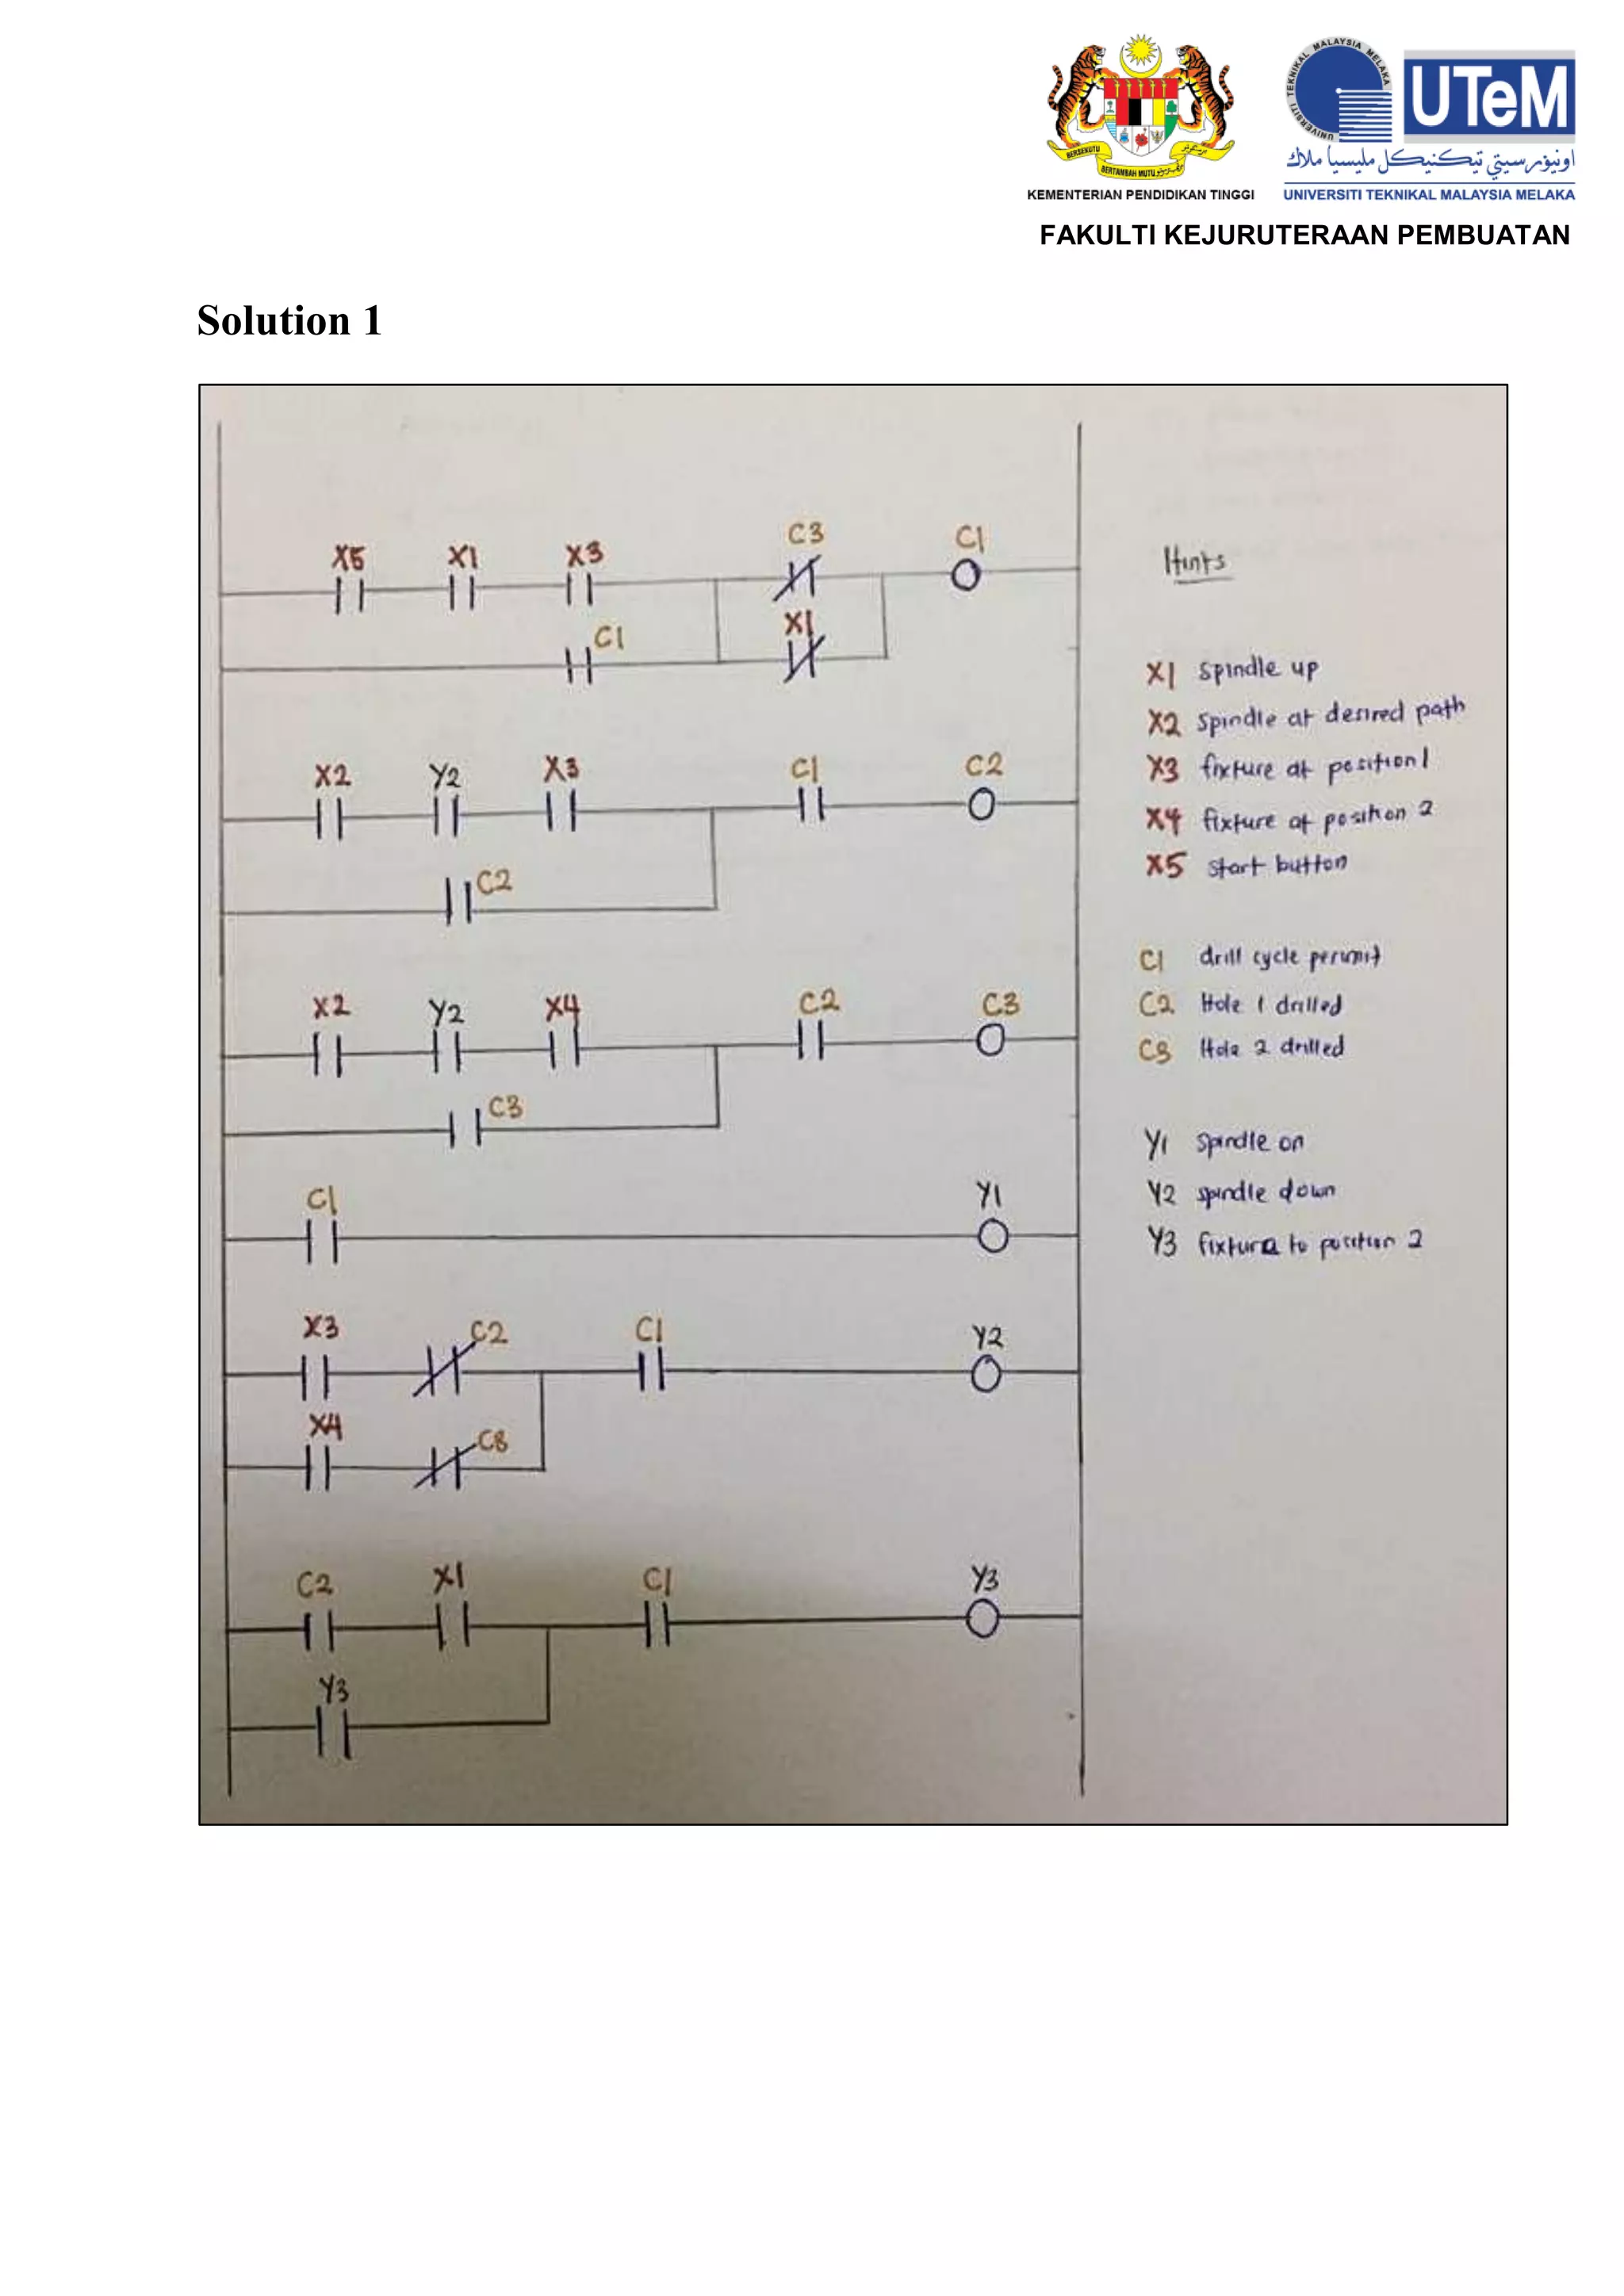 BERSEKUTU
BERTAMBAH MUTU
KEMENTERIAN PENDIDIKAN TINGGI
UNIVERSITI TEKNIKAL MALAYSIA MELAKA
UTeM
اونيۏرسيتي تيكنيكل مليسيا ملاك
UNIVERSITI TEKNIKAL MALAYSIA MELAKA
FAKULTI KEJURUTERAAN PEMBUATAN
Solution 1
X5 X1 X3 C3 C1
C1 X1
X2 Y2 X3 C1 C2
C2
X2 Y2 X4 C2 C3
C3
C1 Y1
X3 C2 C1 Y2
X4 C3
C2 X1 C1 Y3
Y3
Hints
X1 Spindle up
X2 Spindle at desired path
X3 fixture at position 1
X4 fixture at position 2
X5 start button
C1 drill cycle permit
C2 Hole 1 drilled
C3 Hole 2 drilled
Y1 Spindle on
Y2 spindle down
Y3 fixture to position 2